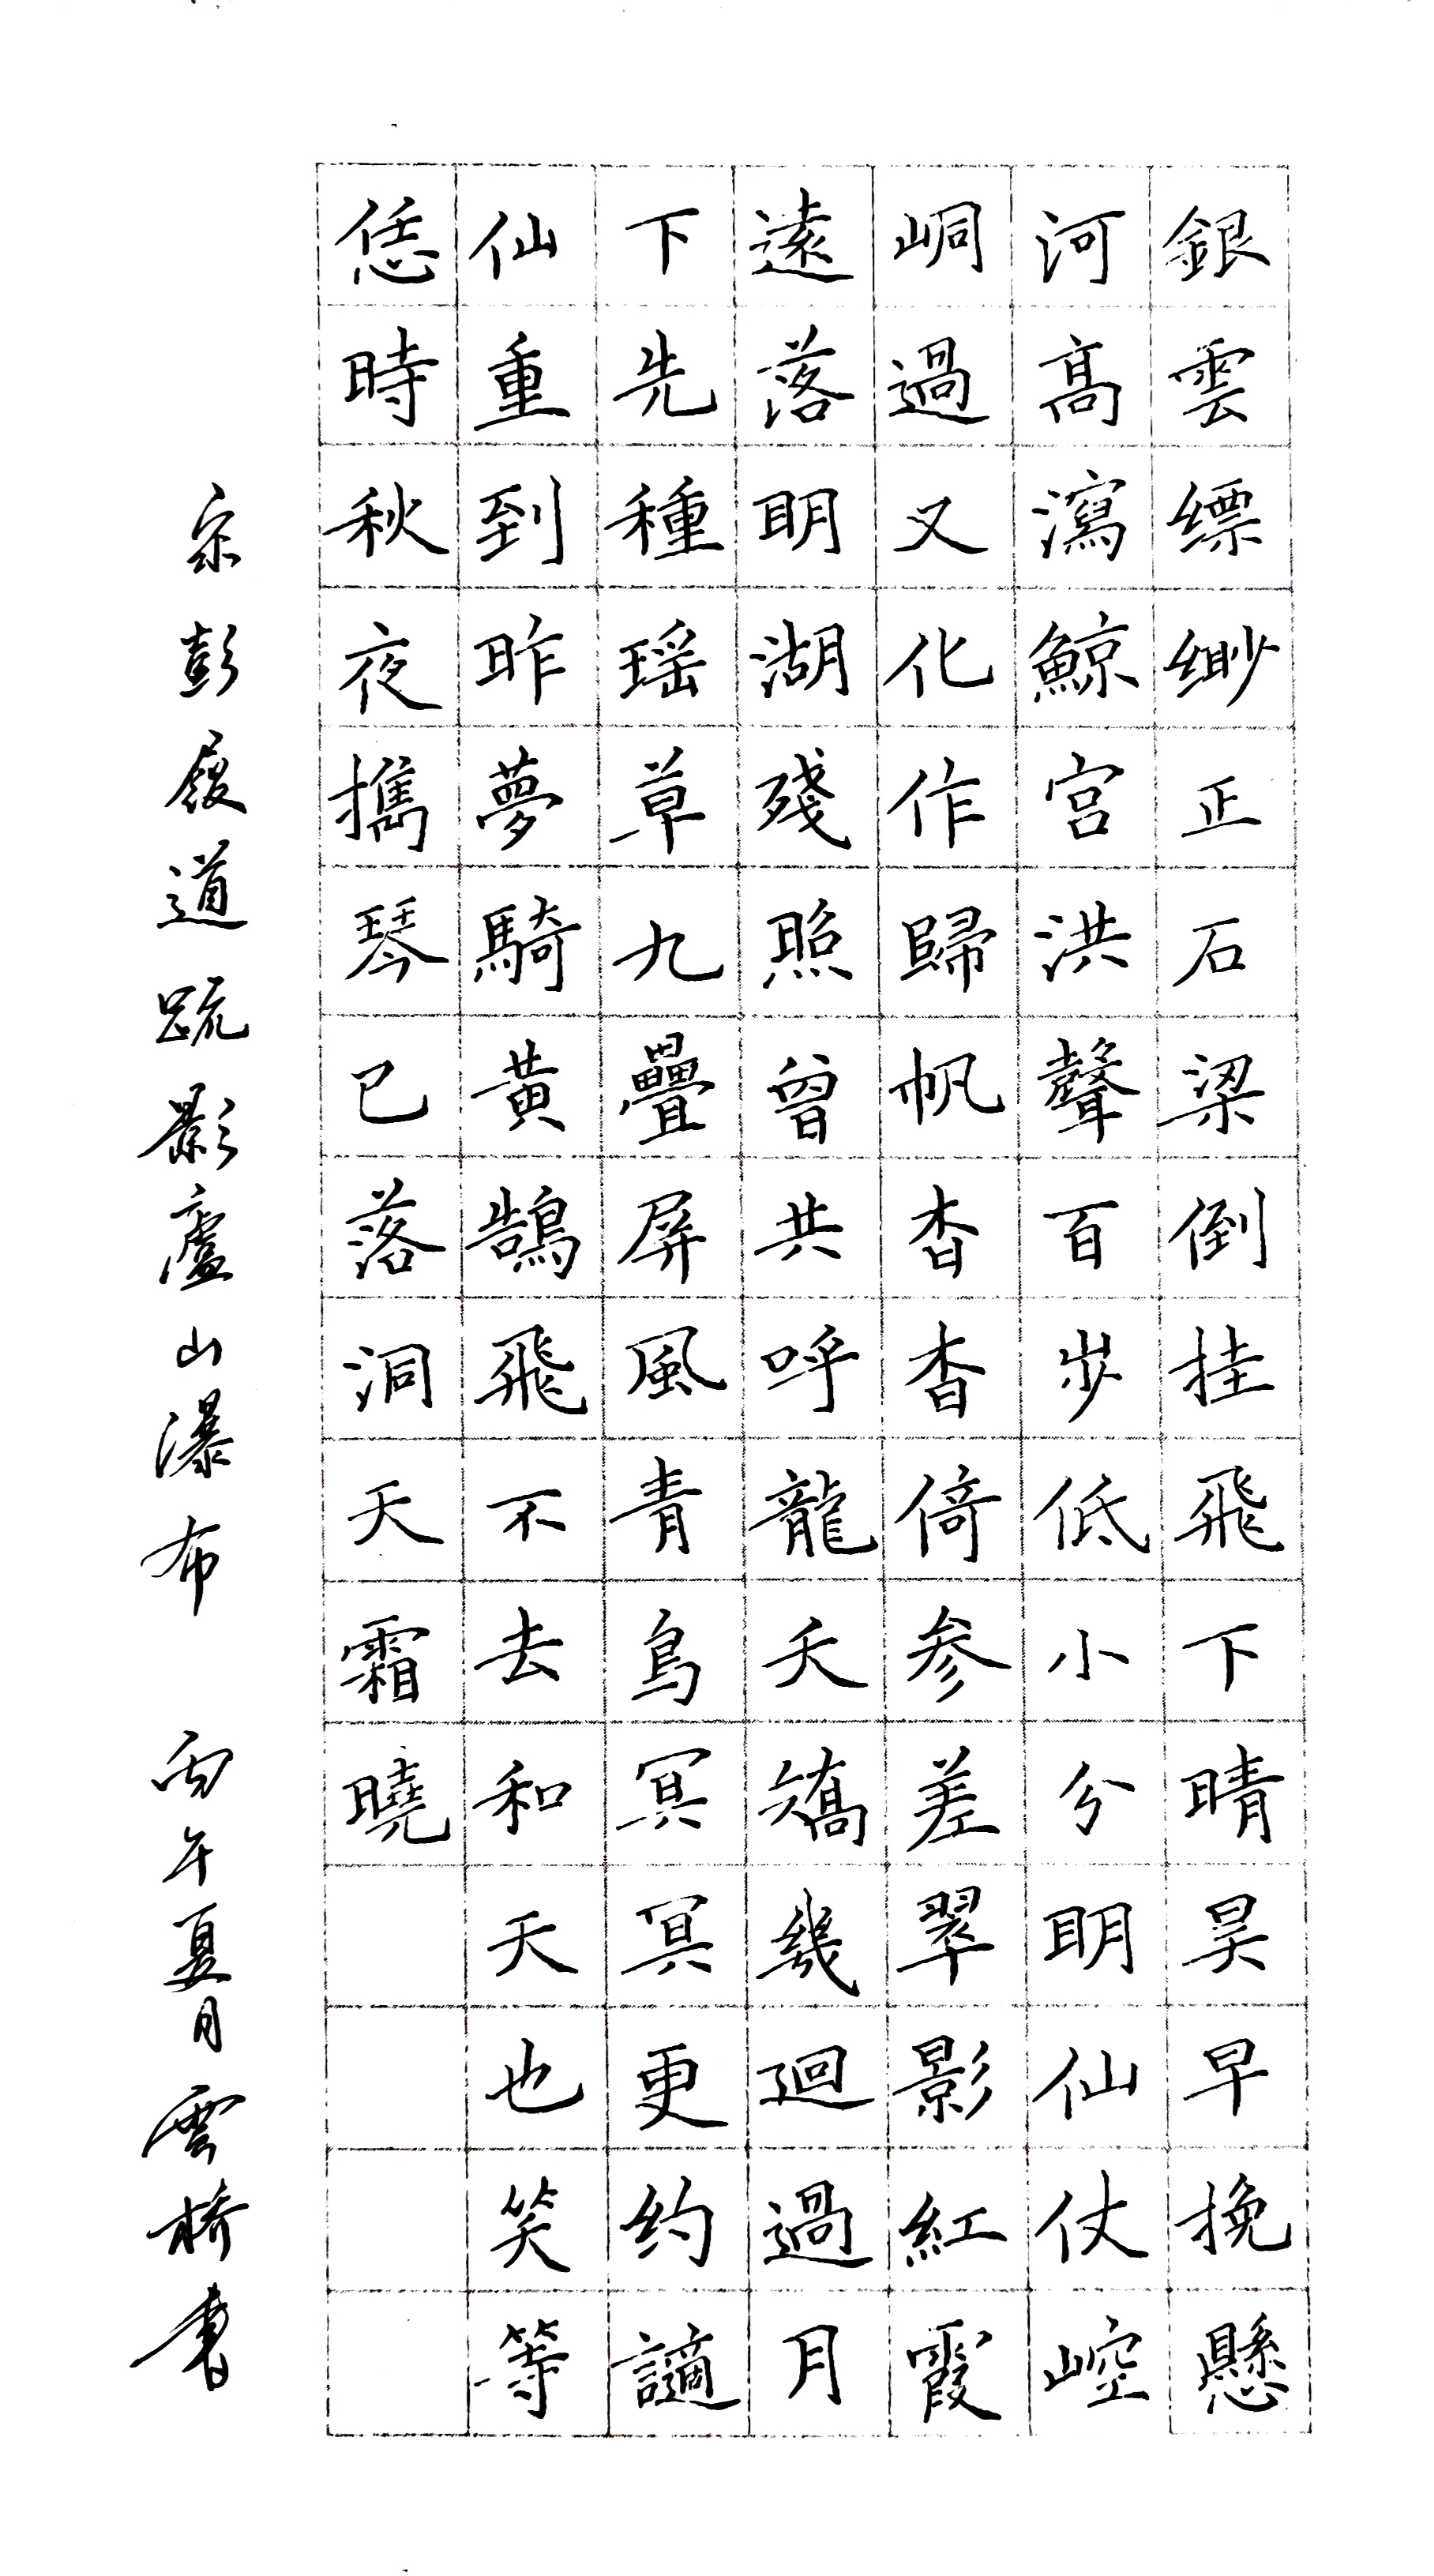 銀雲缥缈正石梁倒挂飛下晴昊早挽懸
河高瀉鯨宫洪聲百步低小兮明仙仗崆
峒過又化作歸帆杳杳倚参差翠影紅霞
遠落明湖殘照曾共呼龍夭矯幾迴過月
下先種瑶草九疊屏風青鳥冥冥更约謫
仙重到昨夢騎黄鵠飛不去和天也笑等
恁時秋夜攜琴已落洞天霜曉
宋彭履道疏影廬山瀑布 丙午夏月雲橋書